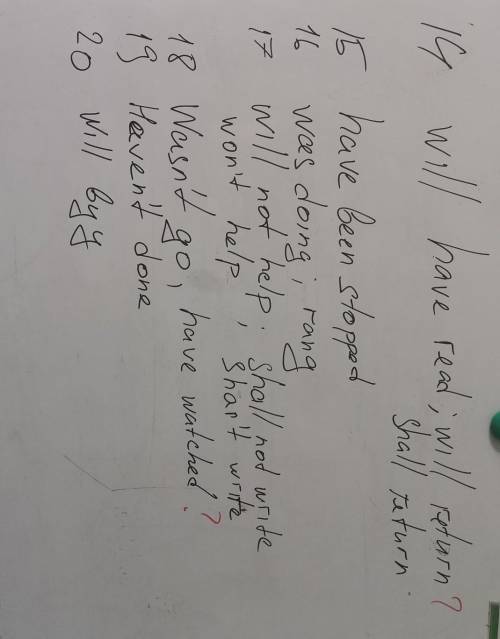 14 will have read; will return?
shall return.
15 have been stopped
16 was doing; rang
17 will not help; shall not write
won't help shan't write
18 Wasn't go, have watched?
19 Haven't done
20 will byy